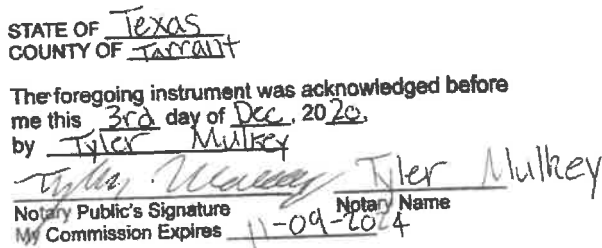 STATE OF Texas
COUNTY OF Tarrant
The foregoing instrument was acknowledged before
me this 3rd day of Dec, 2020,
by Tyler Mulkey
Tyler Mulkey Tyler Mulkey
Notary Public's Signature Notary Name
My Commission Expires 11-09-2024